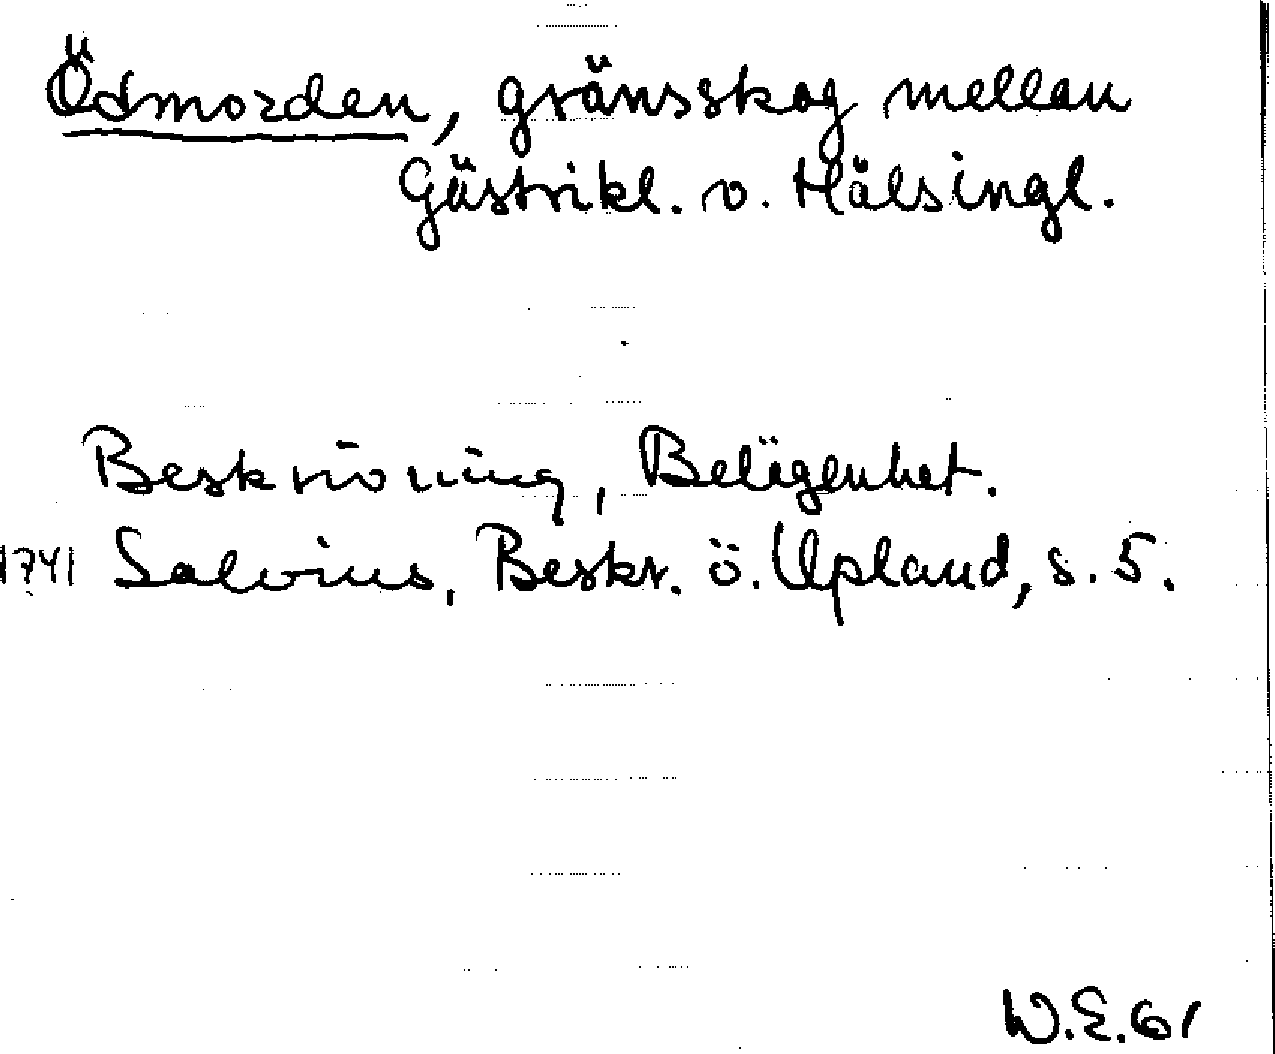 Ödmorden, gränsskog mellan
Gästrikl. o. Hälsingl.
Beskrivning, Belägenhet.
1741 Salvius, Beskr. ö. Upland, s. 5.
W.E.61